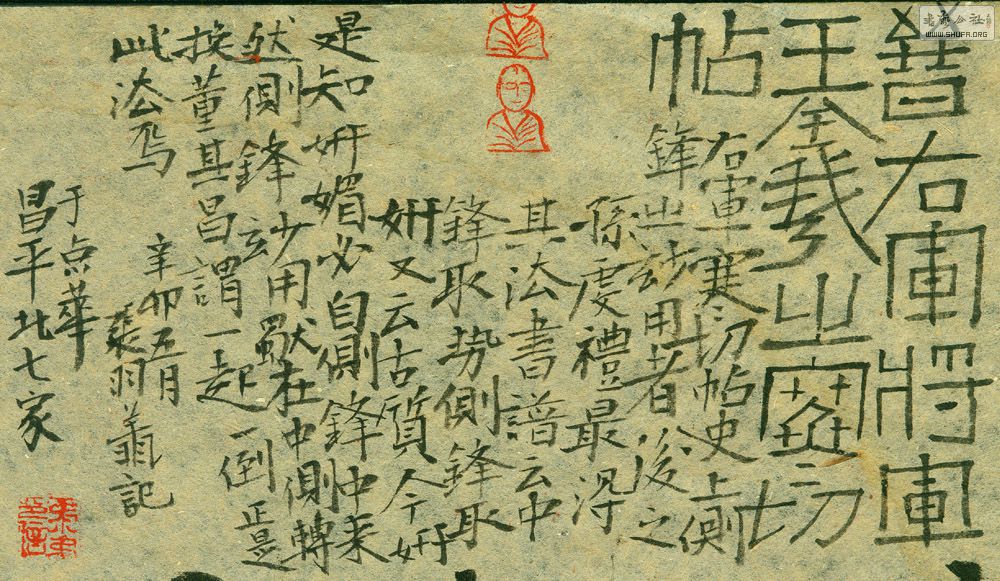 晉右軍將軍
王羲之寒切
帖
右軍寒切帖史上側
鋒之妙用者後之
孫虔禮最得
其法書譜云中
鋒取势側鋒取
妍又云古質今妍
是知妍媚必自側鋒中来
然側鋒玅用獨在中側轉
換董其昌謂一起一倒正是
此法焉
辛卯五月
羽記
于点華
昌平北七家
書法公社
WWW.SHUFA.ORG